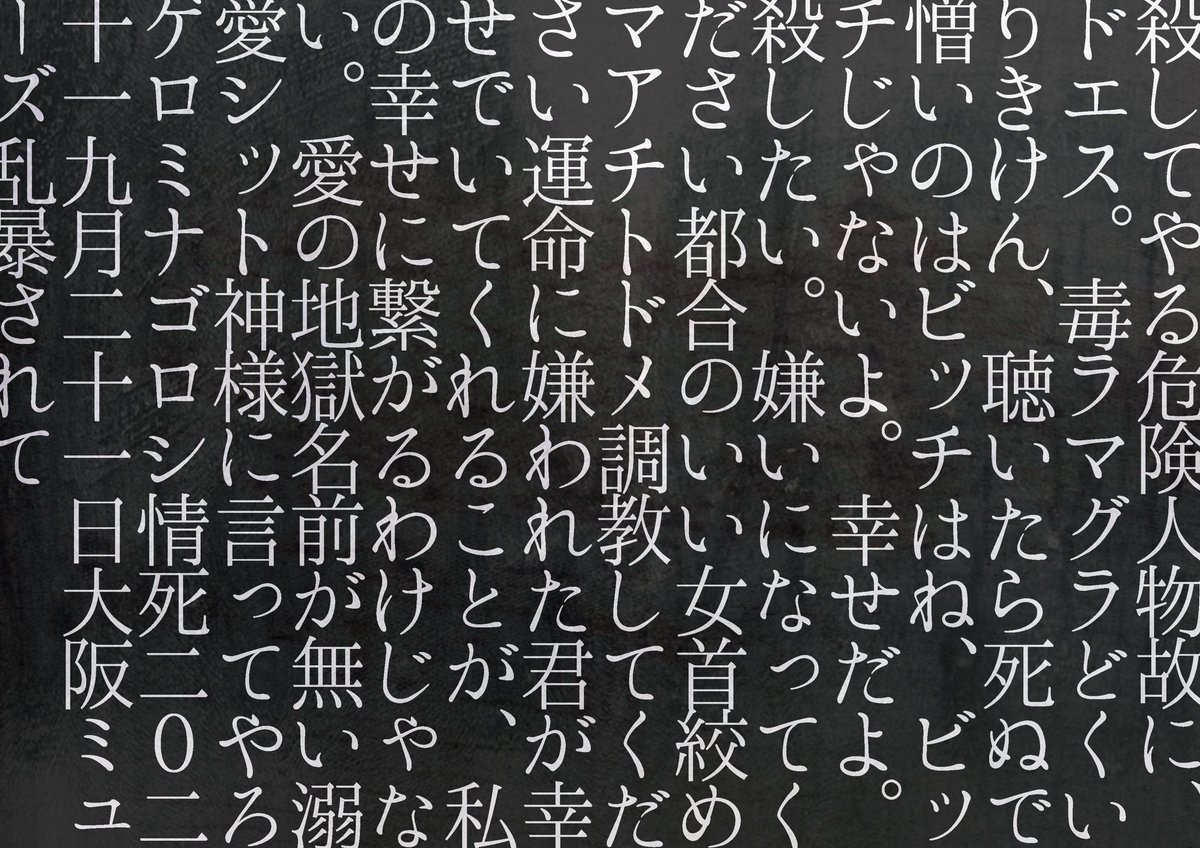 殺してやる危険人物故に、
ドエス。毒ラマグラどくい
りきけん、聴いたら死ぬで
憎いのはビッチはね、ビッ
チじゃないよ。幸せだよ。
殺したい。嫌いになってく
ださい都合のいい女首絞め
マアチトドメ調教してくだ
さい運命に嫌われた君が幸
せでいてくれることが、私
の幸せに繋がるわけじゃな
い。愛の地獄名前が無い溺
愛シット神様に言ってやろ
ゲロミナゴロシ情死二0二
十一九月二十一日大阪ミュ
ーズ乱暴されて